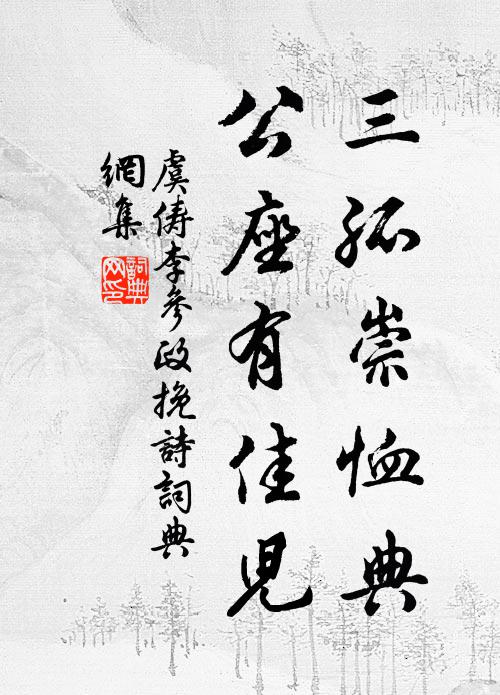 三孤崇恤典
公座有佳児
虞俦李參政挽詩詞典
網集
詞典
网印